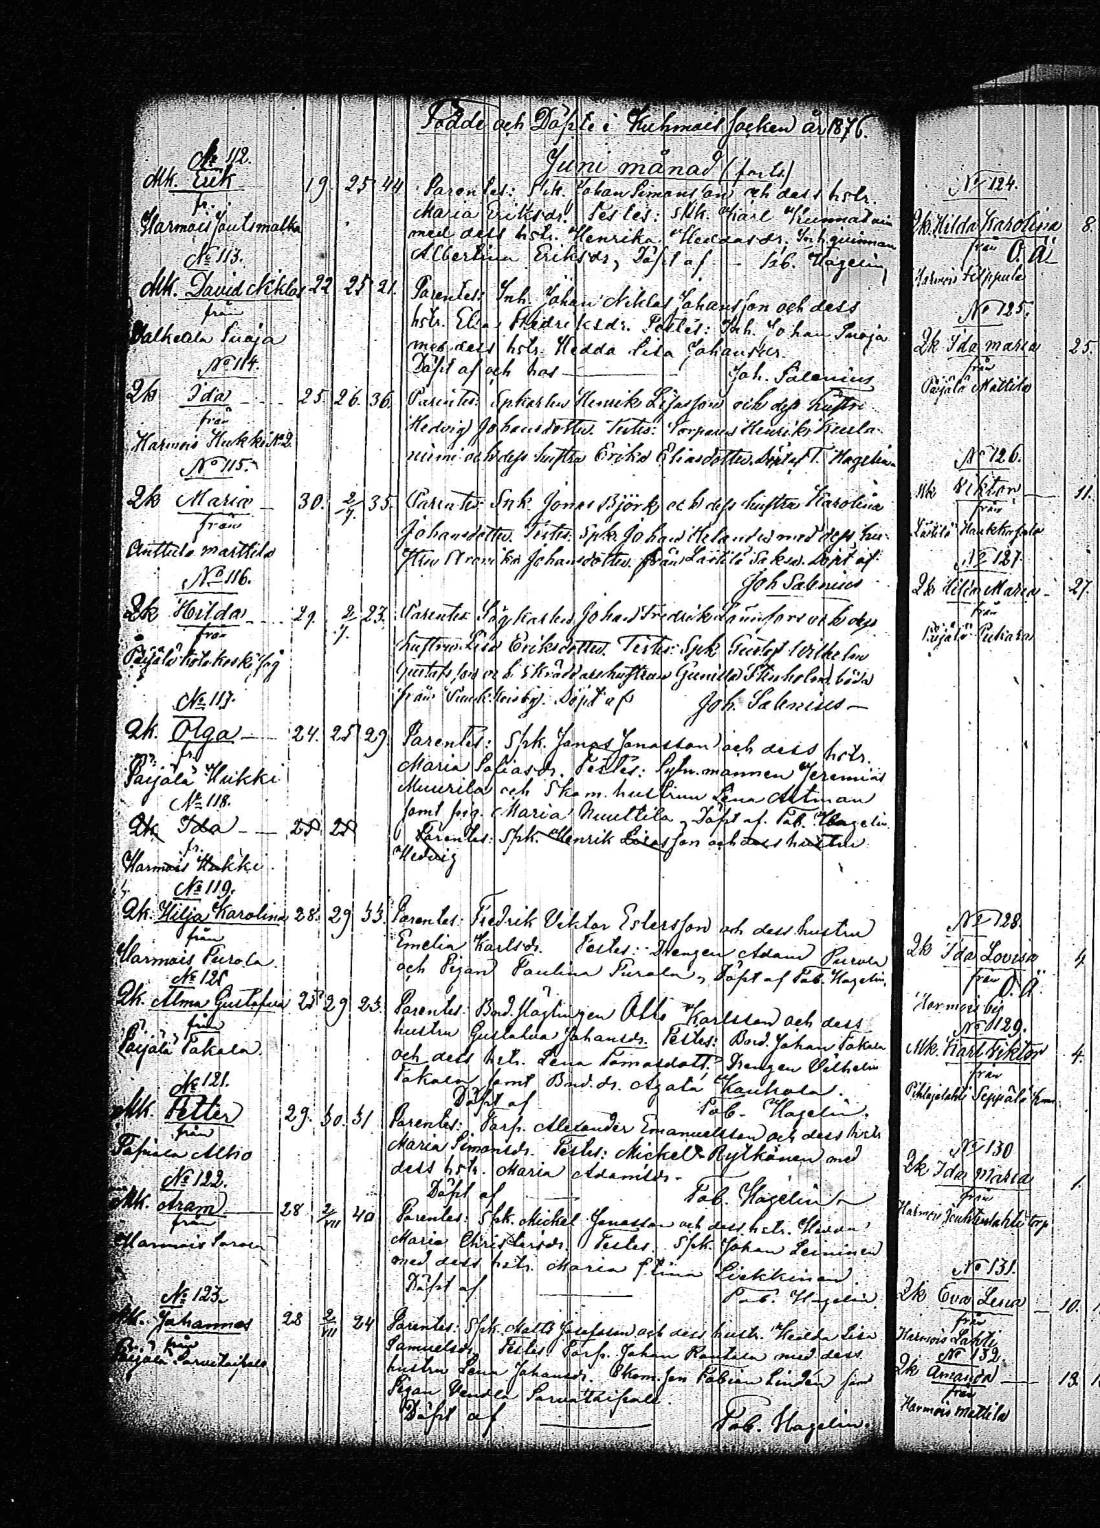 Födde och Döpte i Kuhmois Socken år 1876.
Juni månad (forts)
No 112.
Mk. Erik 19. 25 44
fr.
Harmois Joutsmalka
Parentes: Spk. Johan Simonsson och dess hstr.
Maria Eriksdr. Testes: Spk. Karl
med dess hstr. Henrika Heddasdr. Inh.quinnan
Albertina Eriksdr, Döpt af Fab. Hagelin
No 113.
Mk. David Niklas 22 25 21.
från
Suoja
Parentes: Inh. Johan Niklas Johansson och dess
hstr. Elisa Fredriksdr. Testes: Inh. Johan Suoja
med dess hstr. Hedda Lisa Johansdr.
Döpt af och hos Joh. Salenius
No 114.
Qk Ida 25. 26. 36.
från
Harmois Hukki No 2
Parentes: Spkarlen Henrik och dess hustru
Hedvig Johansdotter. Testes: Torparen Henrik
niemi och dess hustru Erika Eliasdotter. Döpt af F. Hagelin
No 115.
Qk Maria 30. 2/7. 35.
från
Anttula Marttila
Parentes Inh. Jonas Björk och dess hustru Karolina
Johansdotter. Testes: Spk. Johan Helander med dess hu-
stru Johansdotter, från Lästilä Döpt af
Joh Salenius
No 116.
Qk Hilda 29. 2/7. 23.
från
Päijälä Kotakoski såg
Parentes Sågkarlen Johan Fredrik och dess
hustru Lisa Eriksdotter. Testes: Spk Gustaf Wilhelm
Gustafsson och Skräddarehustrun Gunilla Stenholm, båda
från Döpt af Joh. Salenius
No 117.
Qk. Olga 24. 25 29
fr.
Päijälä Hukki
Parentes: Spk. Jonas Jonasson och dess hstr.
Maria Sofiasdr. Testes: Sytn.mannen Jeremias
Muurila och Skom.hustrun Lena Astman
samt pig. Maria Nuuttila, Döpt af. Fab. Hagelin.
No 118.
Qk Ida 25 28
fr.
Harmois Hukki
Parentes: Spk. Henrik och dess hustru
Hedvig
No 119.
Qk. Hilja Karolina 28. 29 33.
från
Harmois Purola
Parentes: Fredrik Viktor Estersson och dess hustru
Emelia Karlsdr. Testes: Drengen Adam Purola
och Pigan Paulina Purola, Döpt af Fab. Hagelin,
No 120
Qk. Alma Gustafva 25 29 23.
från
Päijälä Takala
Parentes: Bond.Måglingen Otto Karlsson och dess
hustru Gustafva Johansdr. Testes: Bond. Johan Takala
och dess hstr. Lena Tomasdott. Drengen Wilhelm
Takala samt Bond.dr. Agata Kaukola.
Döpt af Fab. Hagelin.
No 121.
Mk. Petter 29. 30. 31.
från
Alho
Parentes: Torp. Alexander Emanuelsson och dess hstr
Maria Simonsdr. Testes: Mickel Rytkönen med
dess hstr. Maria Adamsdr.
Döpt af Fab. Hagelin
No 122.
Mk. Aram 28 2/VII 40
från
Harmois
Parentes: Spk. Mickel Jonasson och dess hstr. Hedda
Maria Christersdr. Testes. Spk. Johan Leininen
med dess hstr. Maria Stina Liekkinen
Döpt af Fab. Hagelin.
No 123.
Mk. Johannes 28 2/VII 24
från
Päijälä Parvataipale
Parentes: Spk. Matts Josefsson och dess hustr. Hedda Lisa
Samuelsdr. Testes Torp. Johan Rantala med dess
hustru Lena Johansdr. Skom.son Fabian Linden samt
Pigan Vendla Parvataipale.
Döpt af Fab. Hagelin.
No 124.
Qk. Hilda Karolina 8.
från O. Ä.
Harmois Filppula
No 125.
Qk Ida Maria 25.
från
Päijälä Mattila
No 126.
Mk Viktor 11.
från
Lästilä
No 127
Qk Maria 27.
från
Päijälä Pukara
No 128.
Qk Ida Lovisa 4.
från O. Ä.
Harmois by
No 129.
Mk. Karl Viktor 4.
från
Pihlajalahti Seppälä
No 130
Qk Ida Maria 1.
från
Harmois torp
No 131.
Qk Eva Lena 10.
från
Harmois Lahti
No 132.
Qk Amanda 13.
från
Harmois Mattila